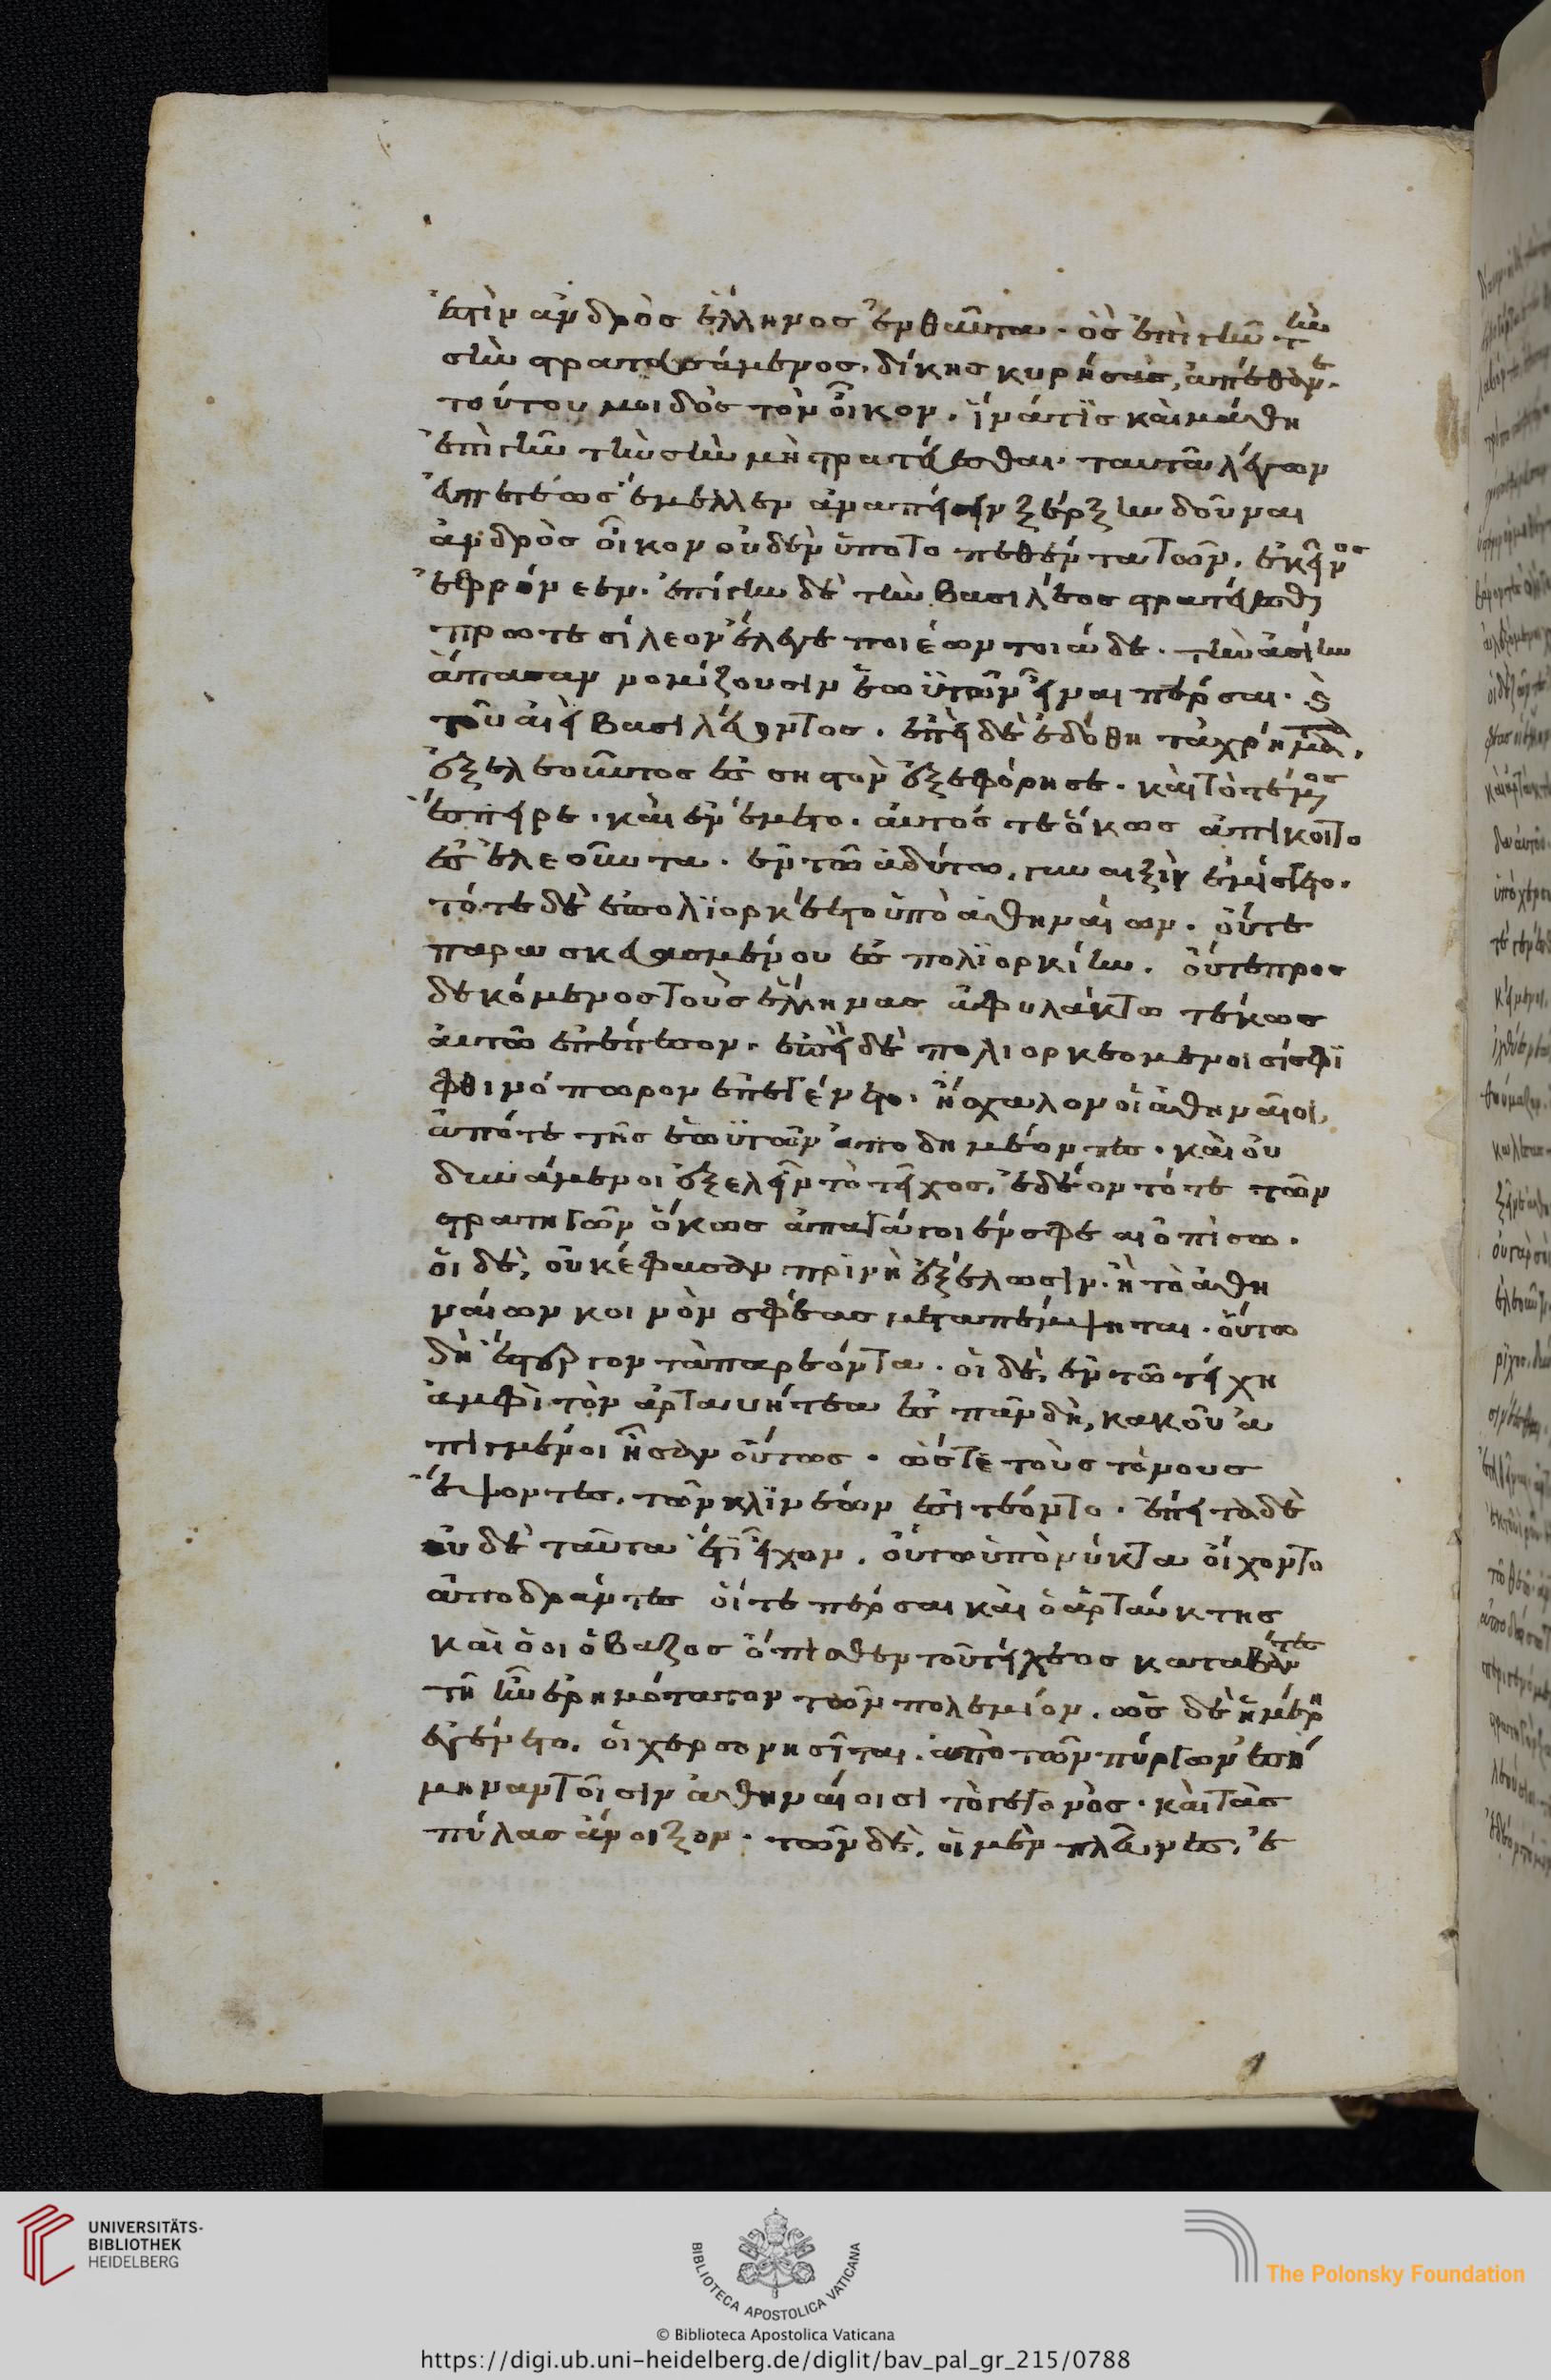 ἐστὶν ἀνδρὸς ἕλληνος ἐνθαῦτα. ὃς ἐπὶ γῆν τὴν
σὴν στρατευσάμενος, δίκης κυρήσας, ἀπέθανε.
τούτου μοι δὸς τὸν οἶκον. ἵνά τις καὶ μάθη
ἐπὶ γῆν τὴν σὴν μὴ στρατεύεσθαι. ταῦτα λέγων
ἐυπετέως ἔμελλεν ἀναπείσειν ξέρξην δοῦναι
ἀνδρὸς οἶκον οὐδὲν ὑποτοπεθέντα τῶν. ἐκεῖνος
ἐφρόνεεν. ἐπὶ γῆν δὲ τὴν βασιλέος στρατεύεσθαι
πρωτεσίλεον ἔλεγε ποιέων τοιάδε. τὴν ἀσίην
ἅπασαν νομίζουσιν ἑωϋτῶν εἶναι πέρσαι. καὶ
τοῦ αἰεὶ βασιλεύοντος. ἐπεὶ δὲ ἐδόθη τὰ χρήματα,
ἐξ ελεοῦντος ἐς σηστὸν ἐξεφόρησε. καὶ τὸ τέμενος
ἔσπειρε. καὶ ἐνέμετο. αὐτός τε ὅκως ἀπίκοιτο
ἐς ἐλεοῦντα. ἐν τῶ ἀδύτω, γυναιξὶν ἐμίσγετο.
τότε δὲ ἐπολϊορκέετο ὑπὸ ἀθηναίων. οὔτε
παρασκευασμένου ἐς πολϊορκίην. οὔτε προσ
δεκόμενος τοὺς ἕλληνας ἀφυλάκτω τέκως
αὐτῶ ἐπέπεσον. ἐπεὶ δὲ πολιορκεομενοισίσφι
φθινόπωρον ἐπεγένετο. ἤσχαλον οἱ ἀθηναῖοι,
ἀπό τε τῆς ἑωϋτῶν ἀποδημέοντες. καὶ οὐ
δυνάμενοι ἐξελεῖν τὸ τεῖχος, ἐδέοντό τε τῶν
στρατηγῶν ὅκως ἀπαγάγοιέν σφεαι ὀπίσω.
οἱ δὲ, οὐκ ἔφασαν πρὶν ἢ ἐξέλωσιν. ἢ τὸ ἀθη
ναίων κοινὸν σφέας μεταπέμψηται. οὕτω
δὴ ἔστεργον τὰ παρεόντα. οἱ δὲ, ἐν τῶ τείχη
ἀμφὶ τὸν ἀρταυκτέα ἐς πᾶν δὴ, κακοῦ ἀ
πιγμένοι ἦσαν οὕτως. ὥστε τοὺς τόνους
ἕψοντες, τῶν κλϊνέων ἐσιτέοντο. ἐπεί τε δὲ
οὐδὲ ταῦτα ἔτι εἶχον, οὕτω ὑπὸ νύκτα οἴχοντο
ἀποδράντες οἵ τε πέρσαι καὶ ὁ ἀρταύκτης
καὶ ὁ οἰόβαζος ὄπισθεν τοῦ τείχεος καταβάντες
τῆ ἦν ἐρημότατον τῶν πολεμίον. ὡς δὲ ἡμέρη
ἐγένετο, οἱ χερσονησῖται, ἀπὸ τῶν πύργων ἐσή
μηναν τοῖσιν ἀθηναίοισι τὸ γεγονὸς. καὶ τὰς
πύλας ἄνοιξον. τῶν δὲ, οἱ μὲν πλεῦνες, ἐ
UNIVERSITÄTS-
BIBLIOTHEK
HEIDELBERG
BIBLIOTECA APOSTOLICA VATICANA
The Polonsky Foundation
© Biblioteca Apostolica Vaticana
https://digi.ub.uni-heidelberg.de/diglit/bav_pal_gr_215/0788